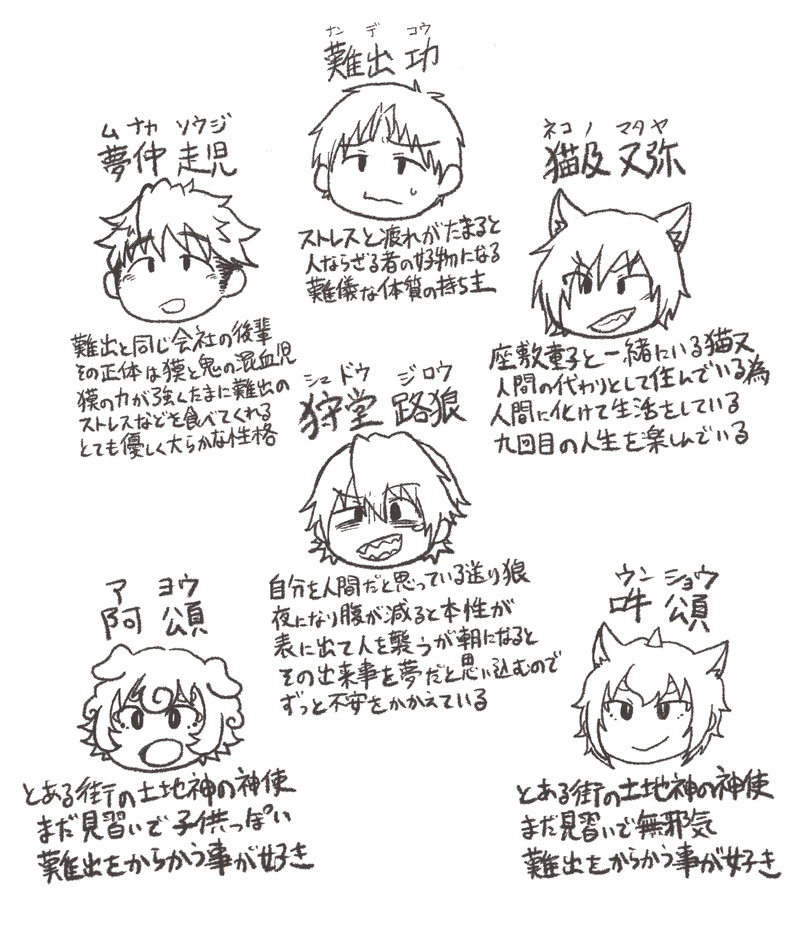 ナン デ コウ
難出 功
ストレスと疲れがたまると
人ならざる者の好物になる
難儀な体質の持ち主
ム ナカ ソウジ
夢仲 走児
難出と同じ会社の後輩
その正体は獏と鬼の混血児
獏の力が強くたまに難出の
ストレスなどを食べてくれる
とても優しく大らかな性格
ネコ ノ マタヤ
猫及 又弥
座敷童子と一緒にいる猫又
人間の代わりとして住んでいる為
人間に化けて生活をしている
九回目の人生を楽しんでいる
シュ ドウ ジロウ
狩堂 路狼
自分を人間だと思っている送り狼
夜になり腹が減ると本性が
表に出て人を襲うが朝になると
その出来事を夢だと思い込むので
ずっと不安をかかえている
ア ヨウ
阿 頌
とある街の土地神の神使
まだ見習いで子供っぽい
難出をからかう事が好き
ウン ショウ
吽 頌
とある街の土地神の神使
まだ見習いで無邪気
難出をからかう事が好き